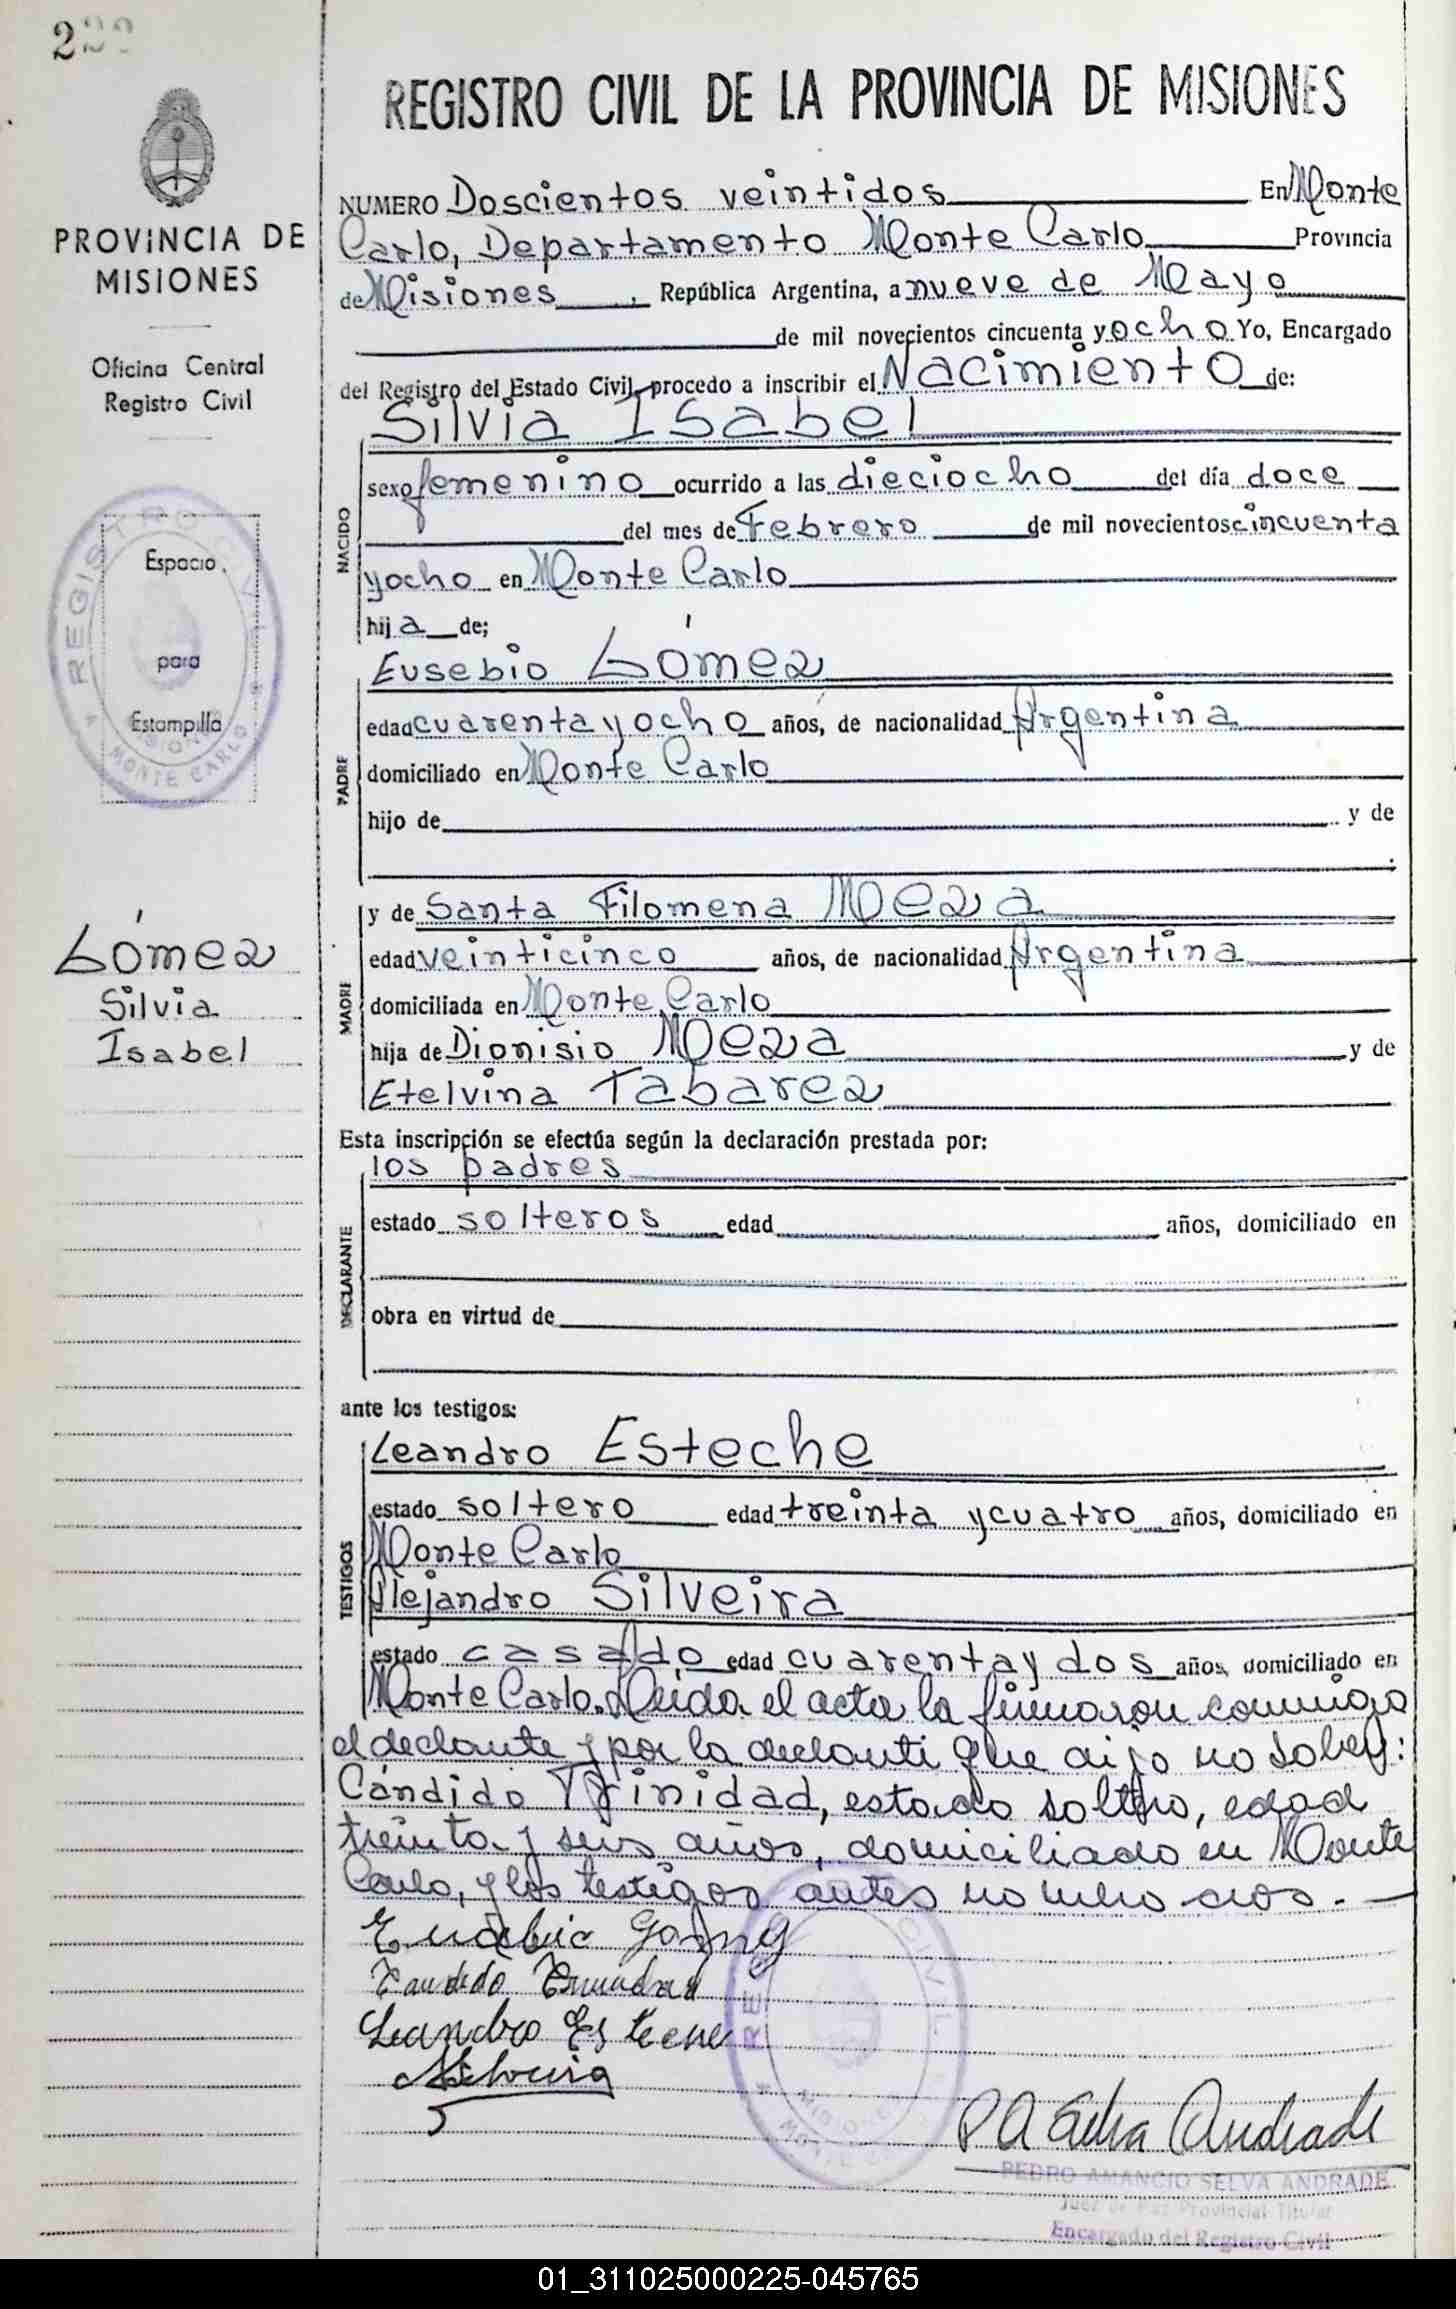 2
REGISTRO CIVIL DE LA PROVINCIA DE MISIONES
PROVINCIA DE
MISIONES
Oficina Central
Registro Civil
REGISTRO CIVIL
Espacio
para
Estampilla
MISIONES
MONTE CARLO
Lómez
Silvia
Isabel
NUMERO Doscientos veintidos En Monte
Carlo, Departamento Monte Carlo Provincia
de Misiones, República Argentina, a nueve de Mayo
de mil novecientos cincuenta y ocho Yo, Encargado
del Registro del Estado Civil, procedo a inscribir el Nacimiento de:
Silvia Isabel
NACIDO
sexo femenino ocurrido a las dieciocho del día doce
del mes de Febrero de mil novecientos cincuenta
y ocho en Monte Carlo
hija de;
Eusebio Lómez
PADRE
edad cuarenta y ocho años, de nacionalidad Argentina
domiciliado en Monte Carlo
hijo de y de
MADRE
y de Santa Filomena Meza
edad veinticinco años, de nacionalidad Argentina
domiciliada en Monte Carlo
hija de Dionisio Meza y de
Etelvina Tabarez
Esta inscripción se efectúa según la declaración prestada por:
los padres
DECLARANTE
estado solteros edad años, domiciliado en
obra en virtud de
ante los testigos:
Leandro Esteche
TESTIGOS
estado soltero edad treinta y cuatro años, domiciliado en
Monte Carlo
Alejandro Silveira
estado casado edad cuarenta y dos años, domiciliado en
Monte Carlo. Leida el acta la firmaron conmigo
el declante y por la declante que dijo no saber:
Cándido Trinidad, estado soltero, edad
treinta y seis años, domiciliado en Monte
Carlo, y los testigos antes nombrados.-
Eusebio
Candido Trinidad
Leandro Esteche
ASilveira
REGISTRO CIVIL
MISIONES
P A Selva Andrade
PEDRO AMANCIO SELVA ANDRADE
Juez de Paz Provincial Titular
Encargado del Registro Civil
01_311025000225-045765